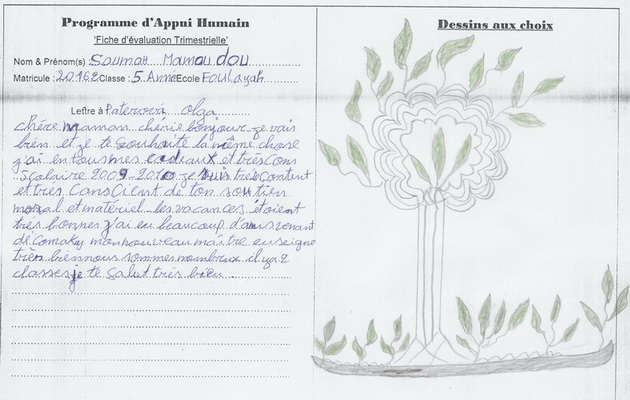 Programme d'Appui Humain
'Fiche d'évaluation Trimestrielle'
Nom & Prénom(s) : Soumah Mamoudou
Matricule : 20162 Classe : 5 Anne Ecole Foulayah
Lettre à Paterovi Olga
chére maman chérie bonjour je vais
bien et je te souhaite la même chose
j'ai en tous mes cadeaux et très Cons
Scolaire 2009-2010 je suis très content
et très ConsCient de ton soutien
moral et matériel les vacances étoient
très bonnes j'ai eu beaucoup d'amis venant
de Conaky mon nouveau maître enseigne
très bien nous sommes nombreux il ya 2
classes je te Salut très bien.
Dessins aux choix